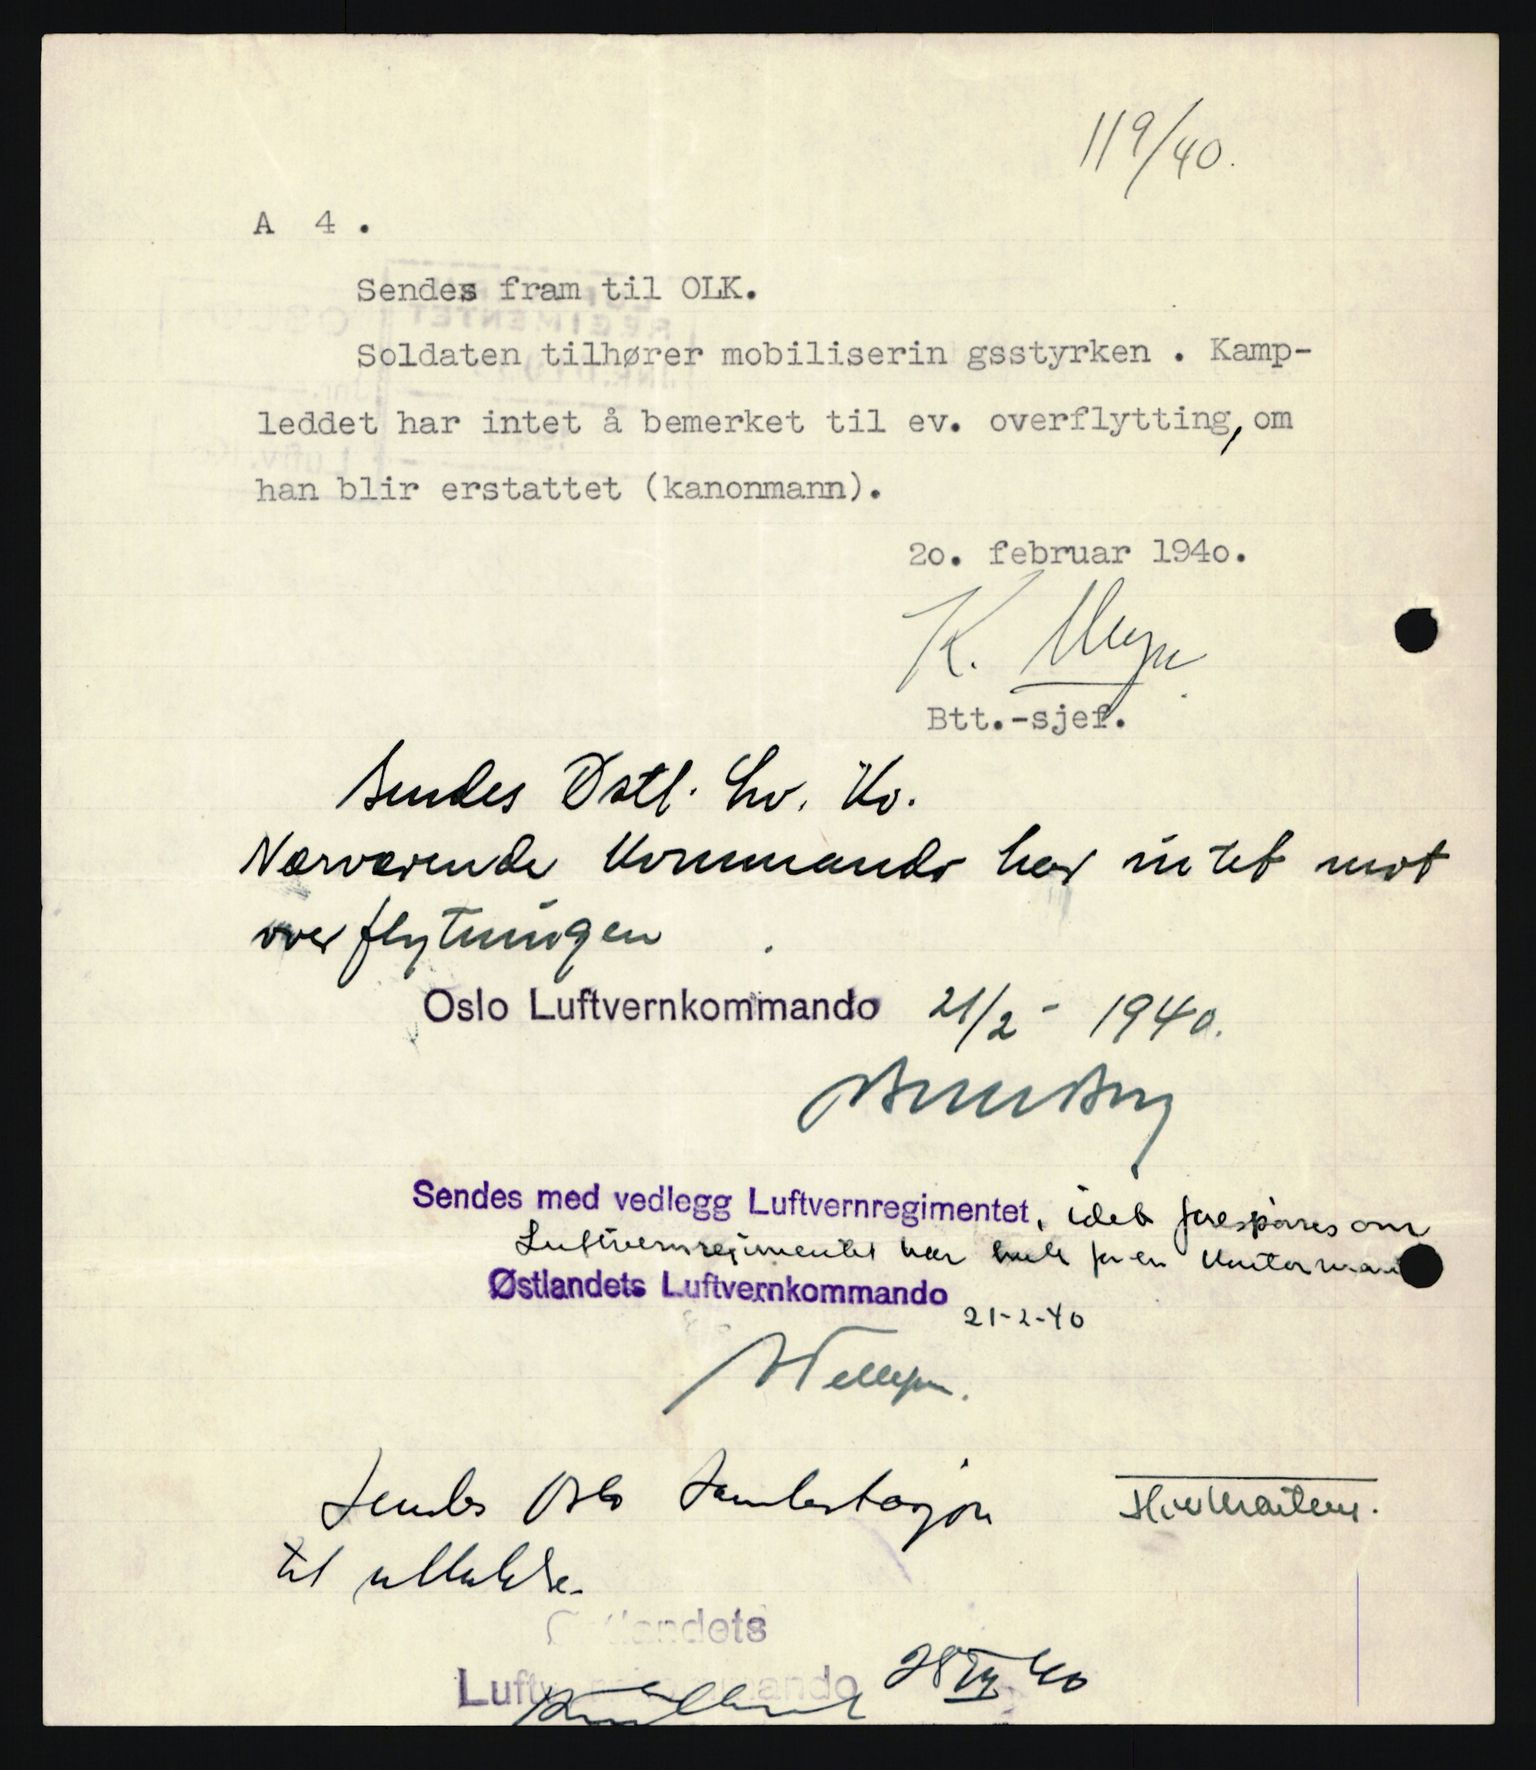 119/40.
A 4.
Sendes fram til OLK.
Soldaten tilhører mobiliserin gsstyrken . Kamp-
leddet har intet å bemerket til ev. overflytting, om
han blir erstattet (kanonmann).
20. februar 1940.
K.
Btt.-sjef.
Sendes Østl. Lv. Ko.
Nærværende Kommando har intet mot
overflytningen
Oslo Luftvernkommando 21/2 - 1940.
Sendes med vedlegg Luftvernregimentet, idet forespørres om
Luftvernregimentet har bruk for en
Østlandets Luftvernkommando
21-2-40
Sendes Oslo
til uttalelse.
Østlandets
Luftvernkommando 28 40